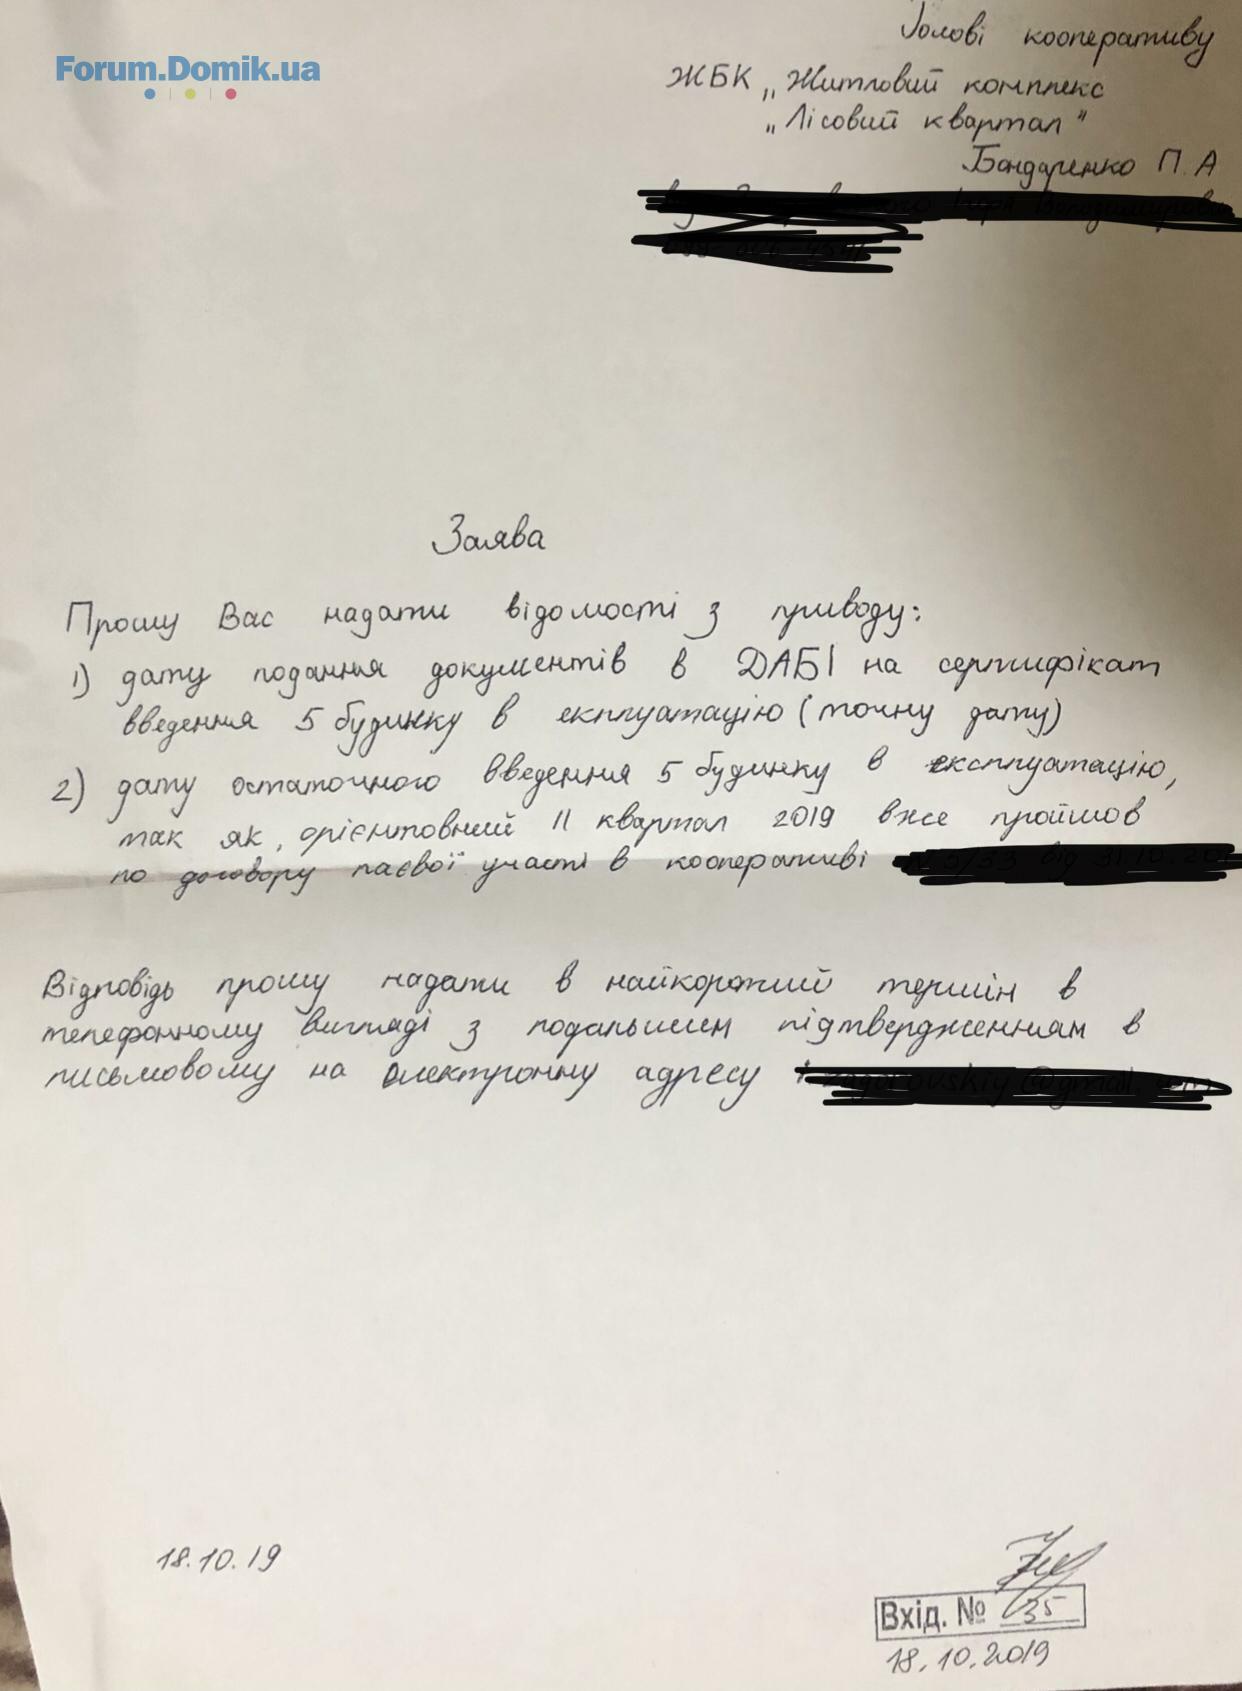 Forum.Domik.ua
Голові кооперативу
ЖБК „Житловий комплекс
„Лісовий квартал"
Бондаренко П.А
Заява
Прошу Вас надати відомості з приводу:
1) дату подання документів в ДАБІ на сертифікат
введення 5 будинку в експлуатацію (точну дату)
2) дату остаточного введення 5 будинку в експлуатацію,
так як, орієнтовний II квартал 2019 вже пройшов
по договору паєвої участі в кооперативі
Відповідь прошу надати в найкоротший термін в
телефонному вигляді з подальшим підтвердженням в
письмовому на електронну адресу
18.10.19
Вхід. № 35
18.10.2019